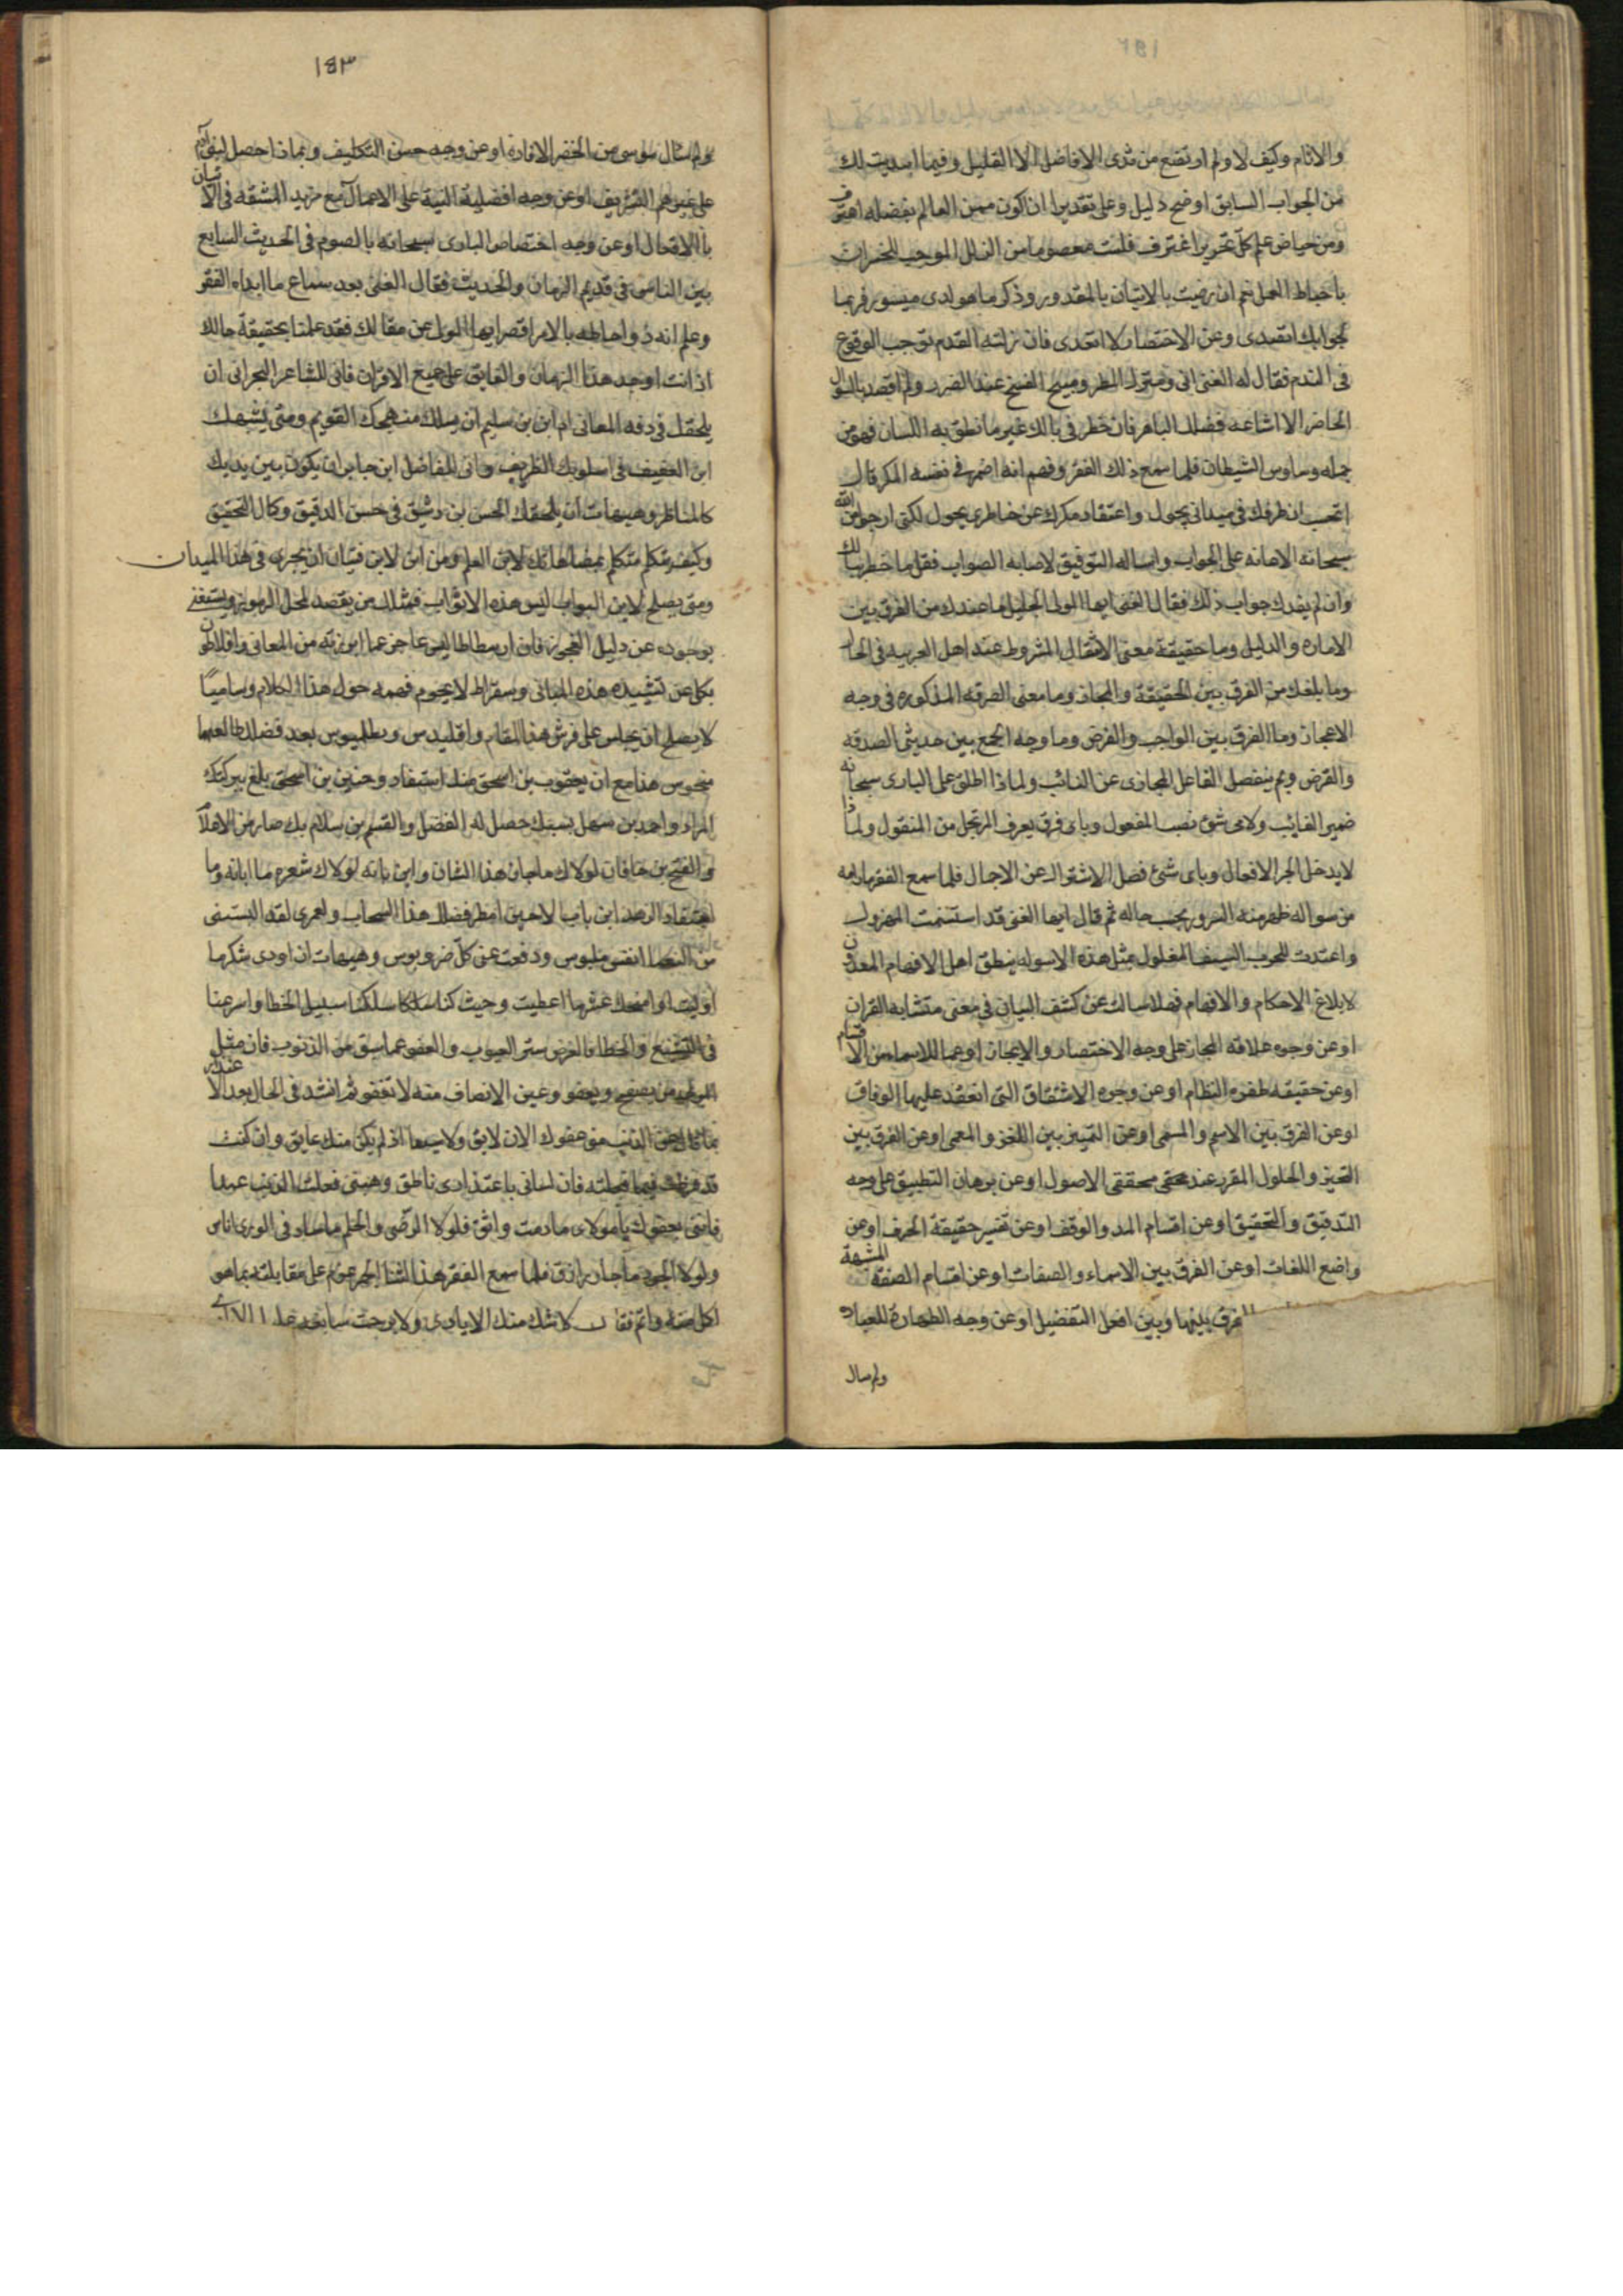 والاثام وكيف لا ولم ارتضع من ثدى الافاضل الا القليل وفيما ابديت لك
من الجواب السابق اوضح دليل وعلى تقدير ان اكون ممن العالم بفضله اعترف
ومن حياض علم كل نحرير اغترف فلست معصوما من الزلل الموجب للخسران
باحباط العمل نعم ان رضيت بالاتيان بالمقدور وذكر ما هو لدى ميسور فربما
بجوابك اتقيدى وعن الاختصار لا اتعدى فان زلته القدم توجب الوقوع
فى الندم فقال له الغنى انى ومنزل المطر ومبيح عند الضرر ولم اقصد بالسوال
الحاضر الا اشاعه فضلك الباهر فان خطر فى بالك غير ما نطق به اللسان فهو من
جمله وساوس الشيطان فلما سمع ذلك الفقر وفهم انه اضمر فى نفسه المكر قال
اتحب ان طرفك فى ميدانى يجول واعتقاد مكرك عن خاطرى يحول لكنى ارجو من الله
سبحانه الاعانه على الجواب واساله التوفيق لاصابه الصواب فقل ما خطر ببالك
وان لم يفدك جواب ذلك فقال الغنى ايها المولى الجليل ما عندك من الفرق بين
الاماره والدليل وما حقيقة معنى الانتقال المشروط عند اهل العربيه فى الحال
وما بلغك من الفرق بين الحقيقة والمجاز وما معنى الصرفه المذكوره فى وجه
الاعجاز وما الفرق بين الواجب والفرض وما وجه الجمع بين حديثى الصدقه
والقرض وبم ينفصل الفاعل المجازى عن النائب ولماذا اطلق على البارى سبحانه
ضمير الغايب ولاى شئ نصب المفعول وباى فرق يعرف المرتجل من المنقول ولماذا
لا يدخل الجر الافعال وباى شئ فصل الاشتراك عن الاجمال فلما سمع الفقر مرامه
من سواله ظهر منه السرور بحسب حاله ثم قال ايها الغنى قد استسمنت المهزول
واعتدت للحرب السيف المغلول بمثل هذه الاسوله ينطق اهل الافهام المعدون
لابلاغ الاحكام والافهام فهلا سالت عن كشف البيان فى معنى متشابه القران
او عن وجوه علاقه المجاز على وجه الاختصار والايجاز او عما للاسماء من الاقسام
او عن حقيقه طفره النظام او عن وجوه الاشتقاق التى انعقد عليها الوفاق
او عن الفرق بين الاسم والمسمى او عن التمييز بين اللغز والمعمى او عن الفرق بين
التحيز والحلول المقرر عند محققى الاصول او عن برهان التطبيق على وجه
التدقيق والتحقيق او عن اقسام المد والوقف او عن تفسير حقيقة الحرف او عن
واضع اللغات او عن الفرق بين الاسماء والصفات او عن اقسام الصفة المشبهة
الفرق بينها وبين افعل التفضيل او عن وجه الطهارة للعباد
ولم سال
١٨٣
ولم سال موسى من الخضر الافادة او عن وجه حسن التكليف وبماذا حصل لبنى آدم
على غيرهم التشريف او عن وجه افضلية النية على الاعمال مع مزيد المشقه فى الاتيان
بالافعال او عن وجه اختصاص البارى سبحانه بالصوم فى الحديث الشايع
بين الناس فى قديم الزمان والحديث فقال الغنى بعد سماع ما ابداه الفقر
وعلم انه ذو احاطه بالامر اقصر ايها المولى عن مقالك فقد علمنا بحقيقة حالك
اذ انت اوحد هذا الزمان والفايق على جميع الاقران فانى للشاعر البحرانى ان
يلحقك فى دقه المعانى ام ابن بن سليم ان يسلك منهجك القويم ومتى يشبهك
ابن العفيف فى اسلوبك الظريف وانى للفاضل ابن جابر ان يكون بين يديك
كالمناظر وهيهات ان يلحقك الحسن بن رشيق فى حسن الدقيق وكمال التحقيق
وكيف متكلم بمضاهاتك لابن العلم ومن اين لابن فتيان ان يجرى فى هذا الميدان
ومتى يصلح لابن البواب ليس هذه الاثواب فمثلك من يقصد لحل الرموز ويستغنى
بوجوده عن دليل العجوز فان ارسطاطاليس عاجز عما ابرزته من المعانى وافلاطون
بكل عن تشييد هذه المبانى وسقراط لا يحوم فهمه حول هذا الكلام
لا يصلح ان يجلس على فرش هذا المقام واقليدس وبطلميوس بعد فضلك طالعهما
منحوس هذا مع ان يعقوب بن اسحق منك استفاد وحنين بن اسحق بلغ ببركتك
المراد واحمد بن سهل بسببك حصل له الفضل والقسم بن سلام بك صار من الاعلام
والفتح بن خاقان لولاك ما حاز هذا الشان وابن نباته لولاك شعره ما ابانه وما
هذا السحاب ولعمرى لقد البستنى
من النعماء انفس ملبوس ودفعت عنى كل ضر وبوس وهيهات ان اودى شكر ما
اوليت او امنحك عشر ما اعطيت وحيث كنا سلكنا سبيل الخطا واسرعنا
فى التشنيع والخطا فالغرض ستر العيوب والعفو عما سبق من الذنوب فان مثل
المولى من يصفح ويعفو وعين الانصاف منه لا تغفو ثم انشد فى الحال بعد الاعتذار
عفوك الان لايق ولا سيما اذ لم يكن منك عايق وان كنت
قد فرطت فيما قلته فان لسانى باعتذارى ناطق وهبنى فعلت الذنب عمدا
فاننى بعفوك يا مولاى ما دمت واثق فلولا الرضى والحلم ما ساد فى الورى اناس
ولولا الجود ما جاد رازق فلما سمع الفقر هذا الثنا الجم عزم على مقابلته بما هو
اكل منه واتم فقال لا شلت منك الايادى ولا برحت